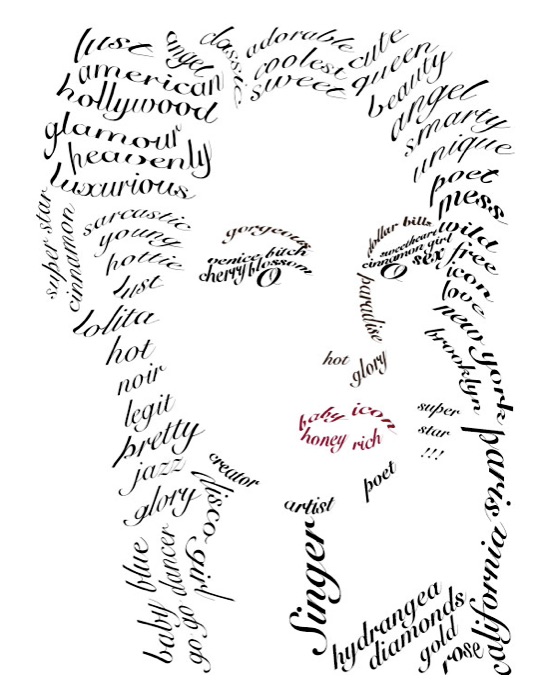 lust
angel
classic
adorable
cute
american
coolest
queen
hollywood
sweet
beauty
angel
glamour
smarty
heavenly
unique
luxurious
poet
mess
super star
cinnamon
sarcastic
young
hottie
lust
lolita
hot
noir
legit
pretty
jazz
glory
gorgeous
venice bitch
cherry blossom
O
dollar bills
sweetheart
cinnamon girl
O
sex
wild
free
icon
love
new york
brooklyn
paradise
hot
glory
baby icon
honey rich
super
star
!!!
paris
california
creator
disco girl
baby blue
go go dancer
artist
poet
Singer
hydrangea
diamonds
gold
rose